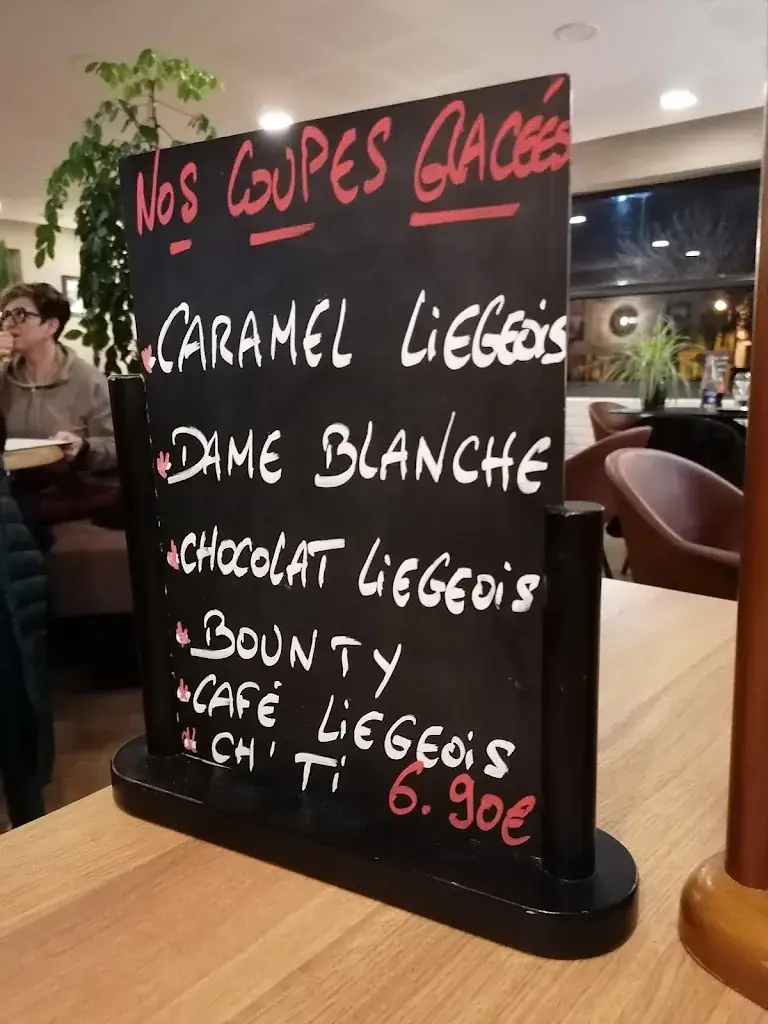 NOS COUPES GLACÉES
CARAMEL LiEGEOiS
DAME BLANCHE
CHOCOLAT LiEGEOiS
BOUNTY
CAFÉ LiEGEOiS
CH'Ti
6.90€